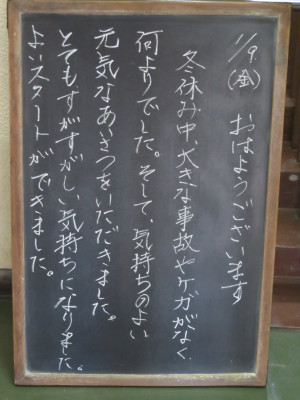 1/9(金) おはようございます
冬休み中、大きな事故やケガがなく、
何よりでした。そして、気持ちのよい
元気なあいさつをいただきました。
とてもすがすがしい気持ちになりました。
よいスタートができました。